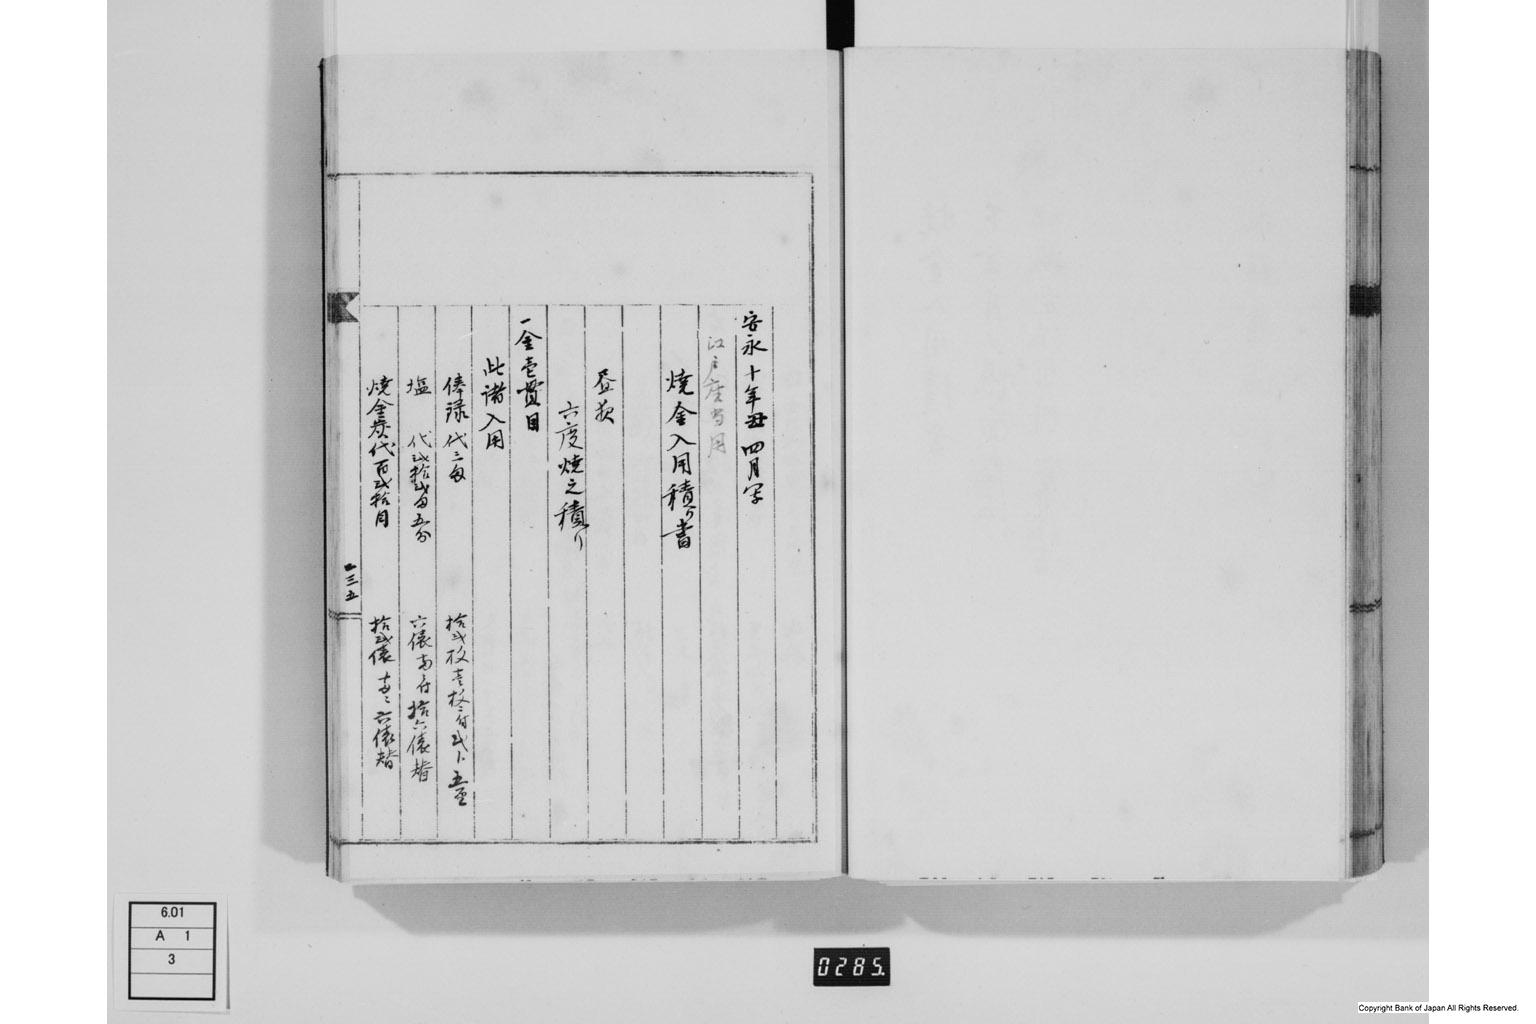 安永十年丑四月写
江戸座当用
焼金入用積り書
昼夜
六度焼之積り
一金壱貫目
此諸入用
俸禄代三匁
拾弐枚壱枚ニ付弐卜五厘
塩 代弐拾弐匁五分
六俵 両ニ付拾六俵替
焼金炭代百弐拾目
拾弐俵 両ニ六俵替
二三五
6.01
A 1
3
0285.
Copyright Bank of Japan All Rights Reserved.